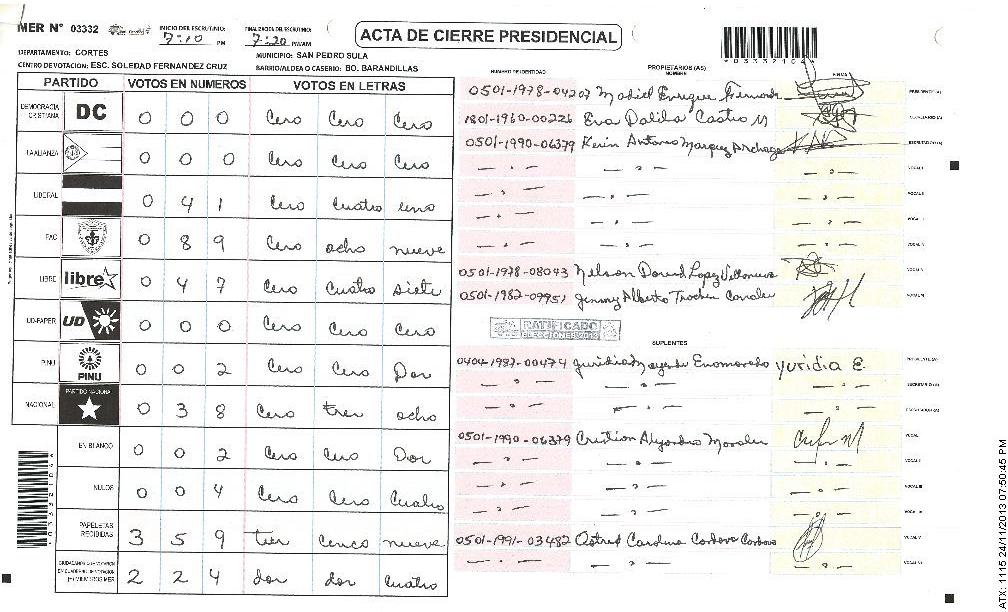 MER N° 03332
INICIO DEL ESCRUTINIO: 7:10 PM
FINALIZACION DEL ESCRUTINIO: 7:20 PM/AM
ACTA DE CIERRE PRESIDENCIAL
DEPARTAMENTO: CORTES
MUNICIPIO: SAN PEDRO SULA
CENTRO DE VOTACION: ESC. SOLEDAD FERNANDEZ CRUZ
BARRIO/ALDEA O CASERIO: BO. BARANDILLAS
PARTIDO VOTOS EN NUMEROS VOTOS EN LETRAS
DEMOCRACIA CRISTIANA DC 0 0 0 Cero Cero Cero
LA ALIANZA 0 0 0 Cero Cero Cero
LIBERAL 0 4 1 Cero Cuatro uno
PAC 0 8 9 Cero ocho nueve
LIBRE libre 0 4 7 Cero Cuatro siete
UD-FAPER UD 0 0 0 Cero Cero Cero
PINU PINU 0 0 2 Cero Cero Dos
NACIONAL PARTIDO NACIONAL 0 3 8 Cero tres ocho
EN BLANCO 0 0 2 Cero Cero Dos
NULOS 0 0 4 Cero Cero Cuatro
PAPELETAS RECIBIDAS 3 5 9 tres cinco nueve
2 2 4 dos dos cuatro
NUMERO DE IDENTIDAD PROPIETARIOS (AS) NOMBRE FIRMA
0501-1978-04207 Enrique PRESIDENTE (A)
1801-1960-00226 Eva Dalila Castro M SECRETARIO (A)
0501-1990-06379 Kevin Antonio Marquez ESCRUTADOR (A)
VOCAL I
VOCAL II
VOCAL III
VOCAL IV
0501-1978-08043 Nelson David Lopez Villanueva VOCAL V
0501-1982-09951 Jimmy Alberto Canales VOCAL VI
RATIFICADO
ELECCIONES 2013
SUPLENTES
0404-1987-00474 Enamorado yuridia E. PRESIDENTE (A)
SECRETARIO (A)
ESCRUTADOR (A)
0501-1990-06379 Cristian Alejandro Morales VOCAL I
VOCAL II
VOCAL III
VOCAL IV
0501-1991-03482 Astrid Carolina Cordova Cordova VOCAL V
VOCAL VI
ATX: 1115 24/11/2013 07:50:45 PM